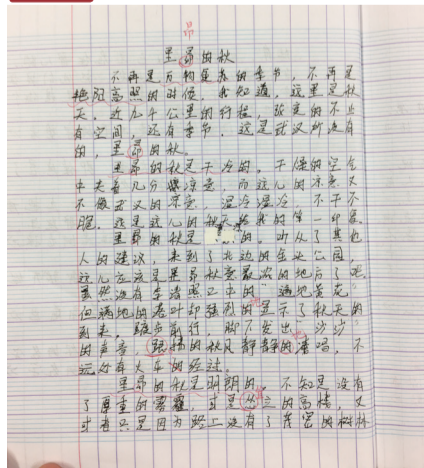 昂
里昂的秋
不再是万物复苏的季节，不再是
艳阳高照的时候，我知道，这里是秋
天。近万千公里的行程，改变的不止
有空间，还有季节，这是武汉所没有
的，里昂的秋。
里昂的秋是干冷的。干燥的空气
中夹着几分凉意，而这儿的凉意又
不像武汉的凉意，湿冷湿冷，不干不
脆。这是这儿的秋天给我的第一印象
里昂的秋是 的。听从了其他
人的建议，来到了北边的金头公园，
这儿应该是里昂秋意最浓的地方了吧
虽然没有李清照口中的“遍地黄花”
但满地的落叶却强烈的显示了秋天的
到来，踱步前行，脚下发出“沙沙”
的声音，飘扬的秋风静静的凄鸣，不
远处有火车的经过。
里昂的秋是明朗的。不知是没有
了厚重的雾霾，或是丛立的高楼，又
或者只是因为路上没有了茂密的树林